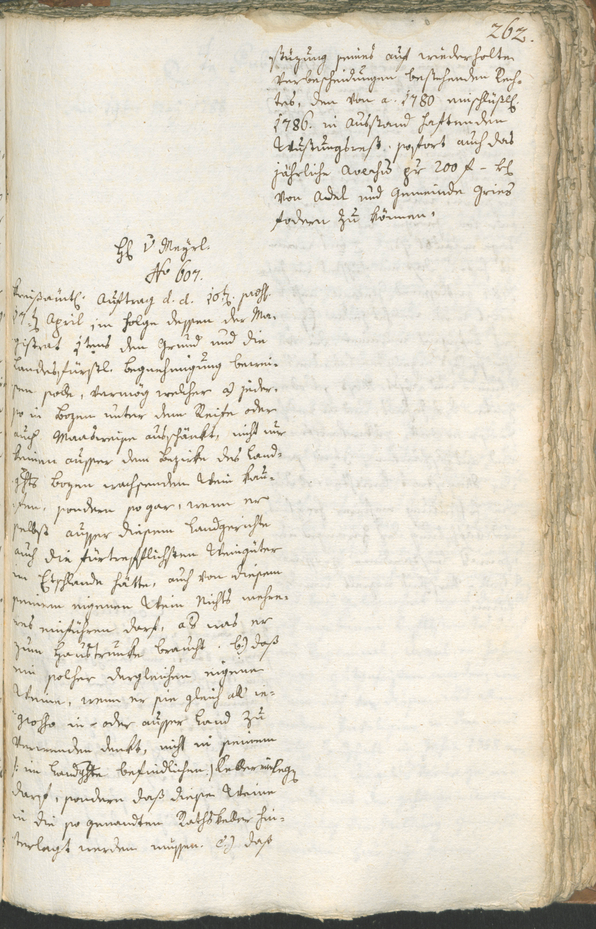 262.
stüzung seines auf wiederholte
Verbescheidungen bestehenden Rech-
tes, den von a. 1780 einschlüßl.
1786. in Ausstand haftenden
Wustungsrest, sofort auch das
jährliche Aversum pr 200 f –
von Adel und Gemeinde Gries
fodern zu können.
H v Meyrl.
No 607.
Kreisämtl. Auftrag d. d. 10t. 
17t April im Folge dessen der Ma-
gistrat 1tens den Grund und die
Landesfürstl. Begnehmigung bewei-
sen solle, vermög welcher a) jeder,
so in Bozen unter dem Reife oder
auch Maasweise ausschänkt, nicht nur
keinen ausser dem Bezirke des Land-
ghts Bozen wachsenden Wein kau-
fen, sondern sogar, wenn er
selbst ausser diesem Landgerichte
auch die fürtrefflichsten Weingüter
in Etschlande hätte, auch von diesem
seinem eigenen Wein Nichts mehre-
res einführen darf, als was er
zum Haustrunke braucht. b) daß
ein solcher dergleichen eigene
Weine, wenn er sie gleich all in-
grosso in- oder ausser Land zu
versenden denkt, nicht in seinem
/: im Landghte befindlichen :/ Keller einlegen
darf, sondern daß diese Weine
in die so genandten Rathskeller hin-
terlagt werden müssen. c) daß